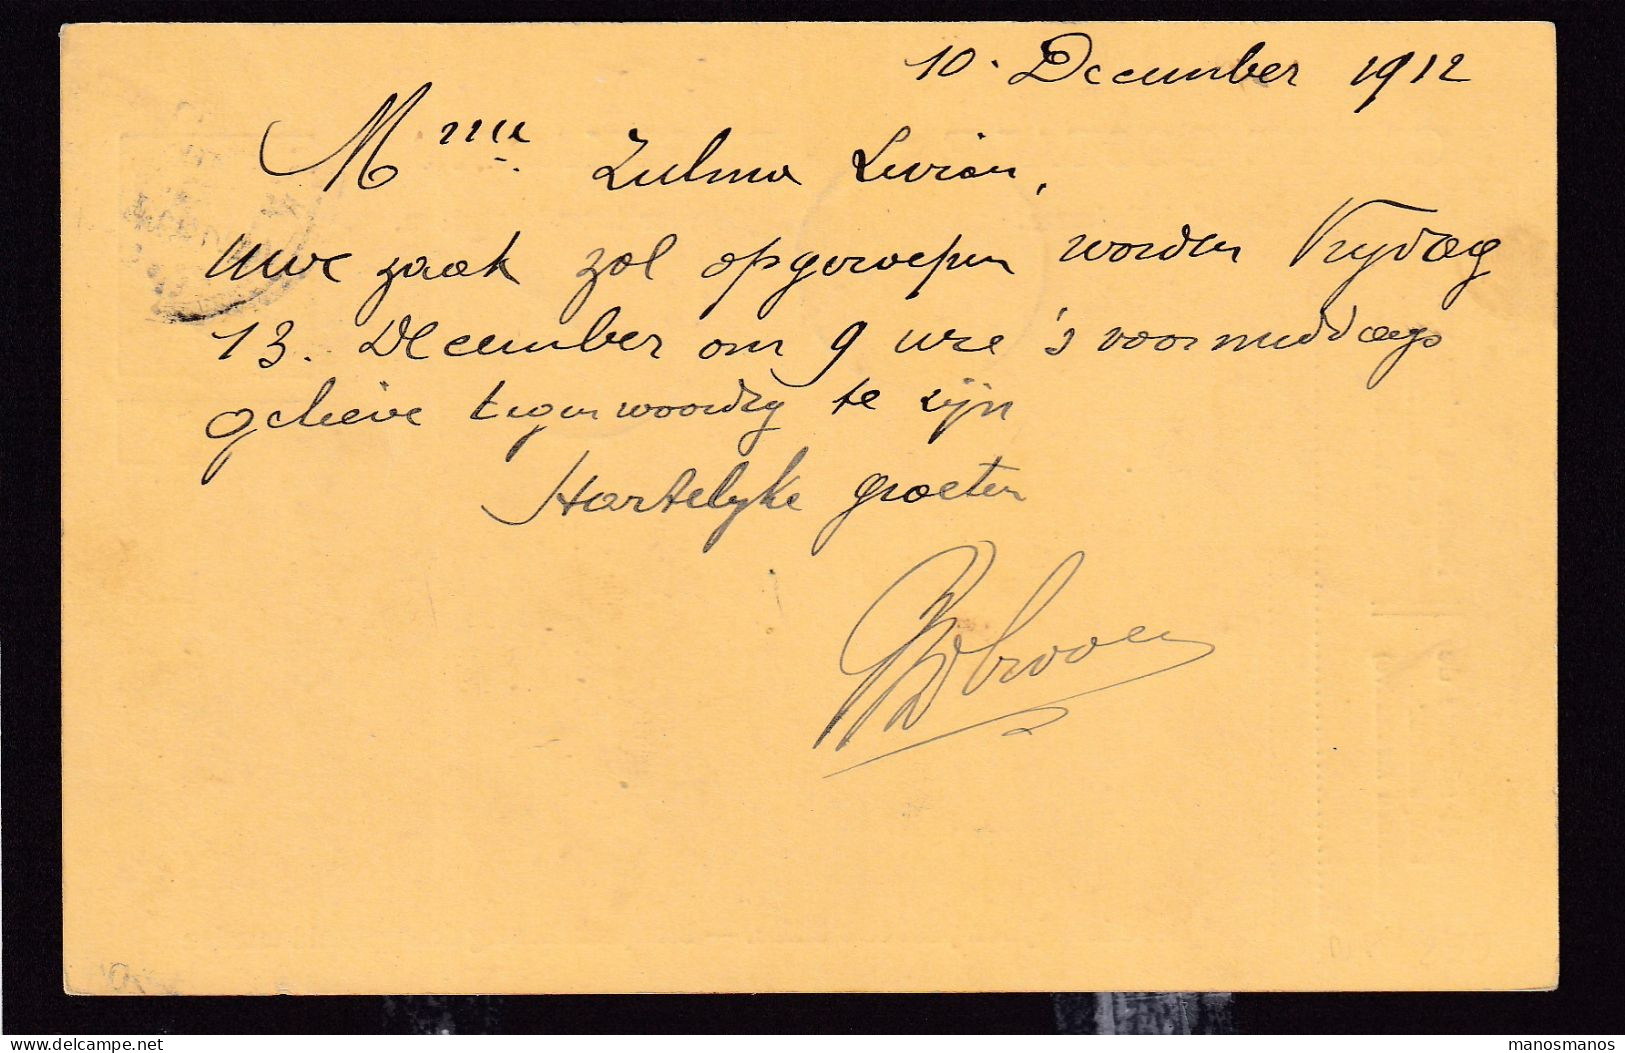 10. December 1912
Mme Zulma Livian,
Uwe zaak zal opgeroepen worden Vrydag
13. December om 9 ure 's voormiddags
gelieve tegenwoordig te zijn
Hartelyke groeten
delcampe.net
manosmanos